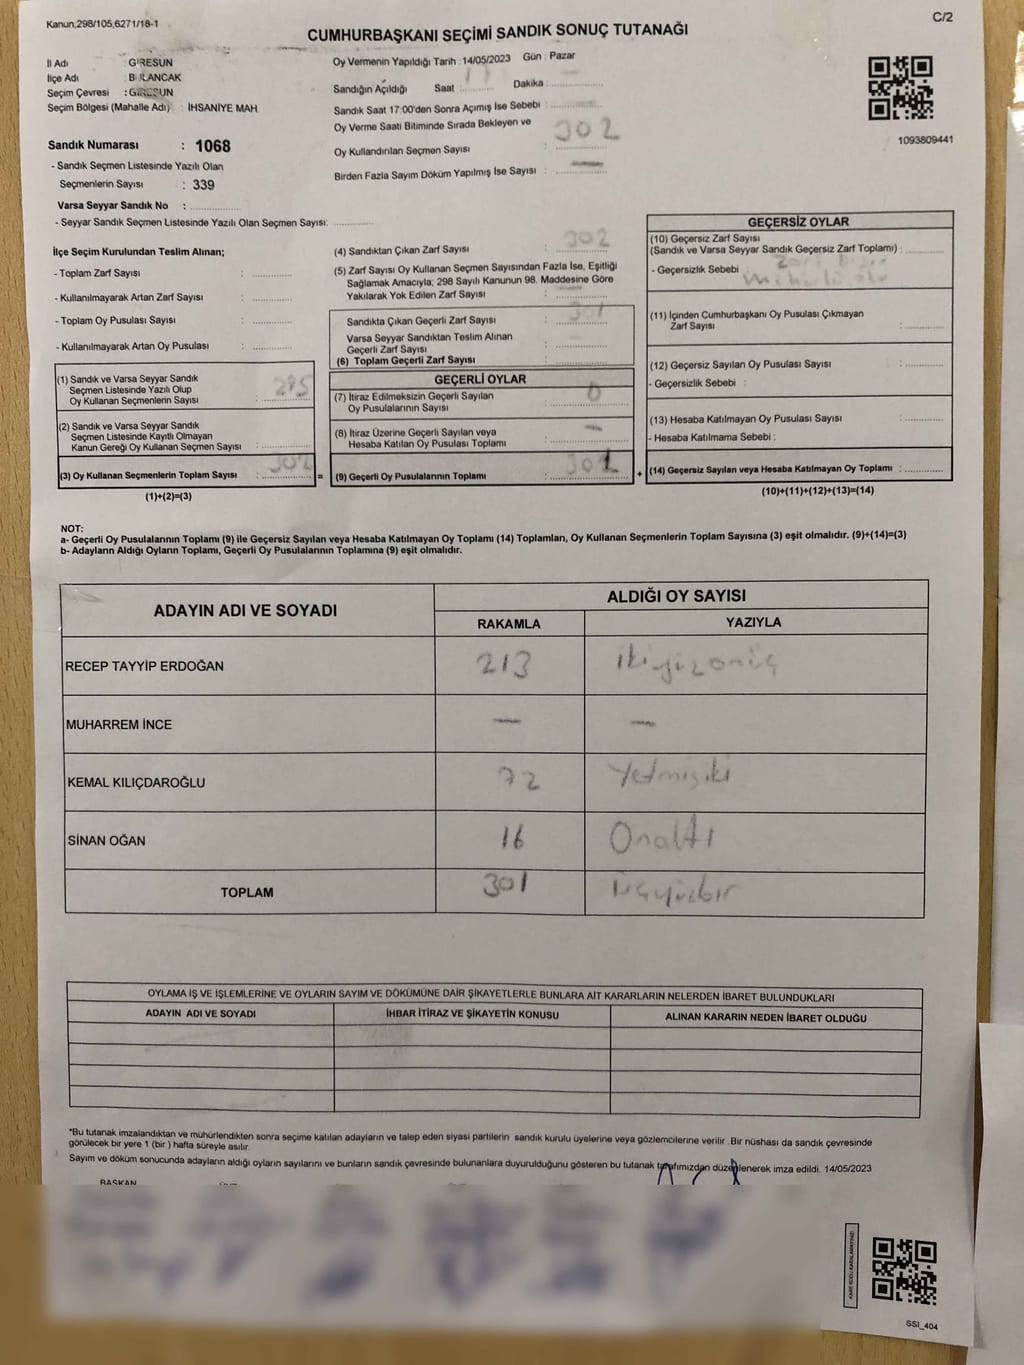 Kanun:298/105,6271/18-1
C/2
CUMHURBAŞKANI SEÇİMİ SANDIK SONUÇ TUTANAĞI
İl Adı GİRESUN
İlçe Adı BULANCAK
Seçim Çevresi : GİRESUN
Seçim Bölgesi (Mahalle Adı) : İHSANİYE MAH.
Sandık Numarası : 1068
- Sandık Seçmen Listesinde Yazılı Olan
Seçmenlerin Sayısı : 339
Varsa Seyyar Sandık No :
- Seyyar Sandık Seçmen Listesinde Yazılı Olan Seçmen Sayısı:
Oy Vermenin Yapıldığı Tarih : 14/05/2023 Gün : Pazar
Sandığın Açıldığı Saat : Dakika :
Sandık Saat 17:00'den Sonra Açımış İse Sebebi :
Oy Verme Saati Bitiminde Sırada Bekleyen ve
Oy Kullandırılan Seçmen Sayısı : 302
Birden Fazla Sayım Döküm Yapılmış İse Sayısı : —
1093809441
İlçe Seçim Kurulundan Teslim Alınan;
- Toplam Zarf Sayısı :
- Kullanılmayarak Artan Zarf Sayısı :
- Toplam Oy Pusulası Sayısı :
- Kullanılmayarak Artan Oy Pusulası :
(1) Sandık ve Varsa Seyyar Sandık
Seçmen Listesinde Yazılı Olup
Oy Kullanan Seçmenlerin Sayısı : 295
(2) Sandık ve Varsa Seyyar Sandık
Seçmen Listesinde Kayıtlı Olmayan
Kanun Gereği Oy Kullanan Seçmen Sayısı :
(3) Oy Kullanan Seçmenlerin Toplam Sayısı : 302
(1)+(2)=(3)
(4) Sandıktan Çıkan Zarf Sayısı : 302
(5) Zarf Sayısı Oy Kullanan Seçmen Sayısından Fazla İse, Eşitliği
Sağlamak Amacıyla; 298 Sayılı Kanunun 98. Maddesine Göre
Yakılarak Yok Edilen Zarf Sayısı : —
Sandıkta Çıkan Geçerli Zarf Sayısı : 301
Varsa Seyyar Sandıktan Teslim Alınan
Geçerli Zarf Sayısı :
(6) Toplam Geçerli Zarf Sayısı :
GEÇERLİ OYLAR
(7) İtiraz Edilmeksizin Geçerli Sayılan
Oy Pusulalarının Sayısı : 0
(8) İtiraz Üzerine Geçerli Sayılan veya
Hesaba Katılan Oy Pusulası Toplamı : —
= (9) Geçerli Oy Pusulalarının Toplamı : 301
GEÇERSİZ OYLAR
(10) Geçersiz Zarf Sayısı
(Sandık ve Varsa Seyyar Sandık Geçersiz Zarf Toplamı) :
- Geçersizlik Sebebi : Zarf
(11) İçinden Cumhurbaşkanı Oy Pusulası Çıkmayan
Zarf Sayısı :
(12) Geçersiz Sayılan Oy Pusulası Sayısı :
- Geçersizlik Sebebi :
(13) Hesaba Katılmayan Oy Pusulası Sayısı :
- Hesaba Katılmama Sebebi :
+ (14) Geçersiz Sayılan veya Hesaba Katılmayan Oy Toplamı :
(10)+(11)+(12)+(13)=(14)
NOT:
a- Geçerli Oy Pusulalarının Toplamı (9) ile Geçersiz Sayılan veya Hesaba Katılmayan Oy Toplamı (14) Toplamları, Oy Kullanan Seçmenlerin Toplam Sayısına (3) eşit olmalıdır. (9)+(14)=(3)
b- Adayların Aldığı Oyların Toplamı, Geçerli Oy Pusulalarının Toplamına (9) eşit olmalıdır.
ADAYIN ADI VE SOYADI ALDIĞI OY SAYISI
RAKAMLA YAZIYLA
RECEP TAYYİP ERDOĞAN 213 ikiyüzonüç
MUHARREM İNCE — —
KEMAL KILIÇDAROĞLU 72 Yetmişiki
SİNAN OĞAN 16 Onaltı
TOPLAM 301 üçyüzbir
OYLAMA İŞ VE İŞLEMLERİNE VE OYLARIN SAYIM VE DÖKÜMÜNE DAİR ŞİKAYETLERLE BUNLARA AİT KARARLARIN NELERDEN İBARET BULUNDUKLARI
ADAYIN ADI VE SOYADI İHBAR İTİRAZ VE ŞİKAYETİN KONUSU ALINAN KARARIN NEDEN İBARET OLDUĞU
*Bu tutanak imzalandıktan ve mühürlendikten sonra seçime katılan adayların ve talep eden siyasi partilerin sandık kurulu üyelerine veya gözlemcilerine verilir. Bir nüshası da sandık çevresinde
görülecek bir yere 1 (bir) hafta süreyle asılır.
Sayım ve döküm sonucunda adayların aldığı oyların sayılarını ve bunların sandık çevresinde bulunanlara duyurulduğunu gösteren bu tutanak tarafımızdan düzenlenerek imza edildi. 14/05/2023
BAŞKAN
SSI_404